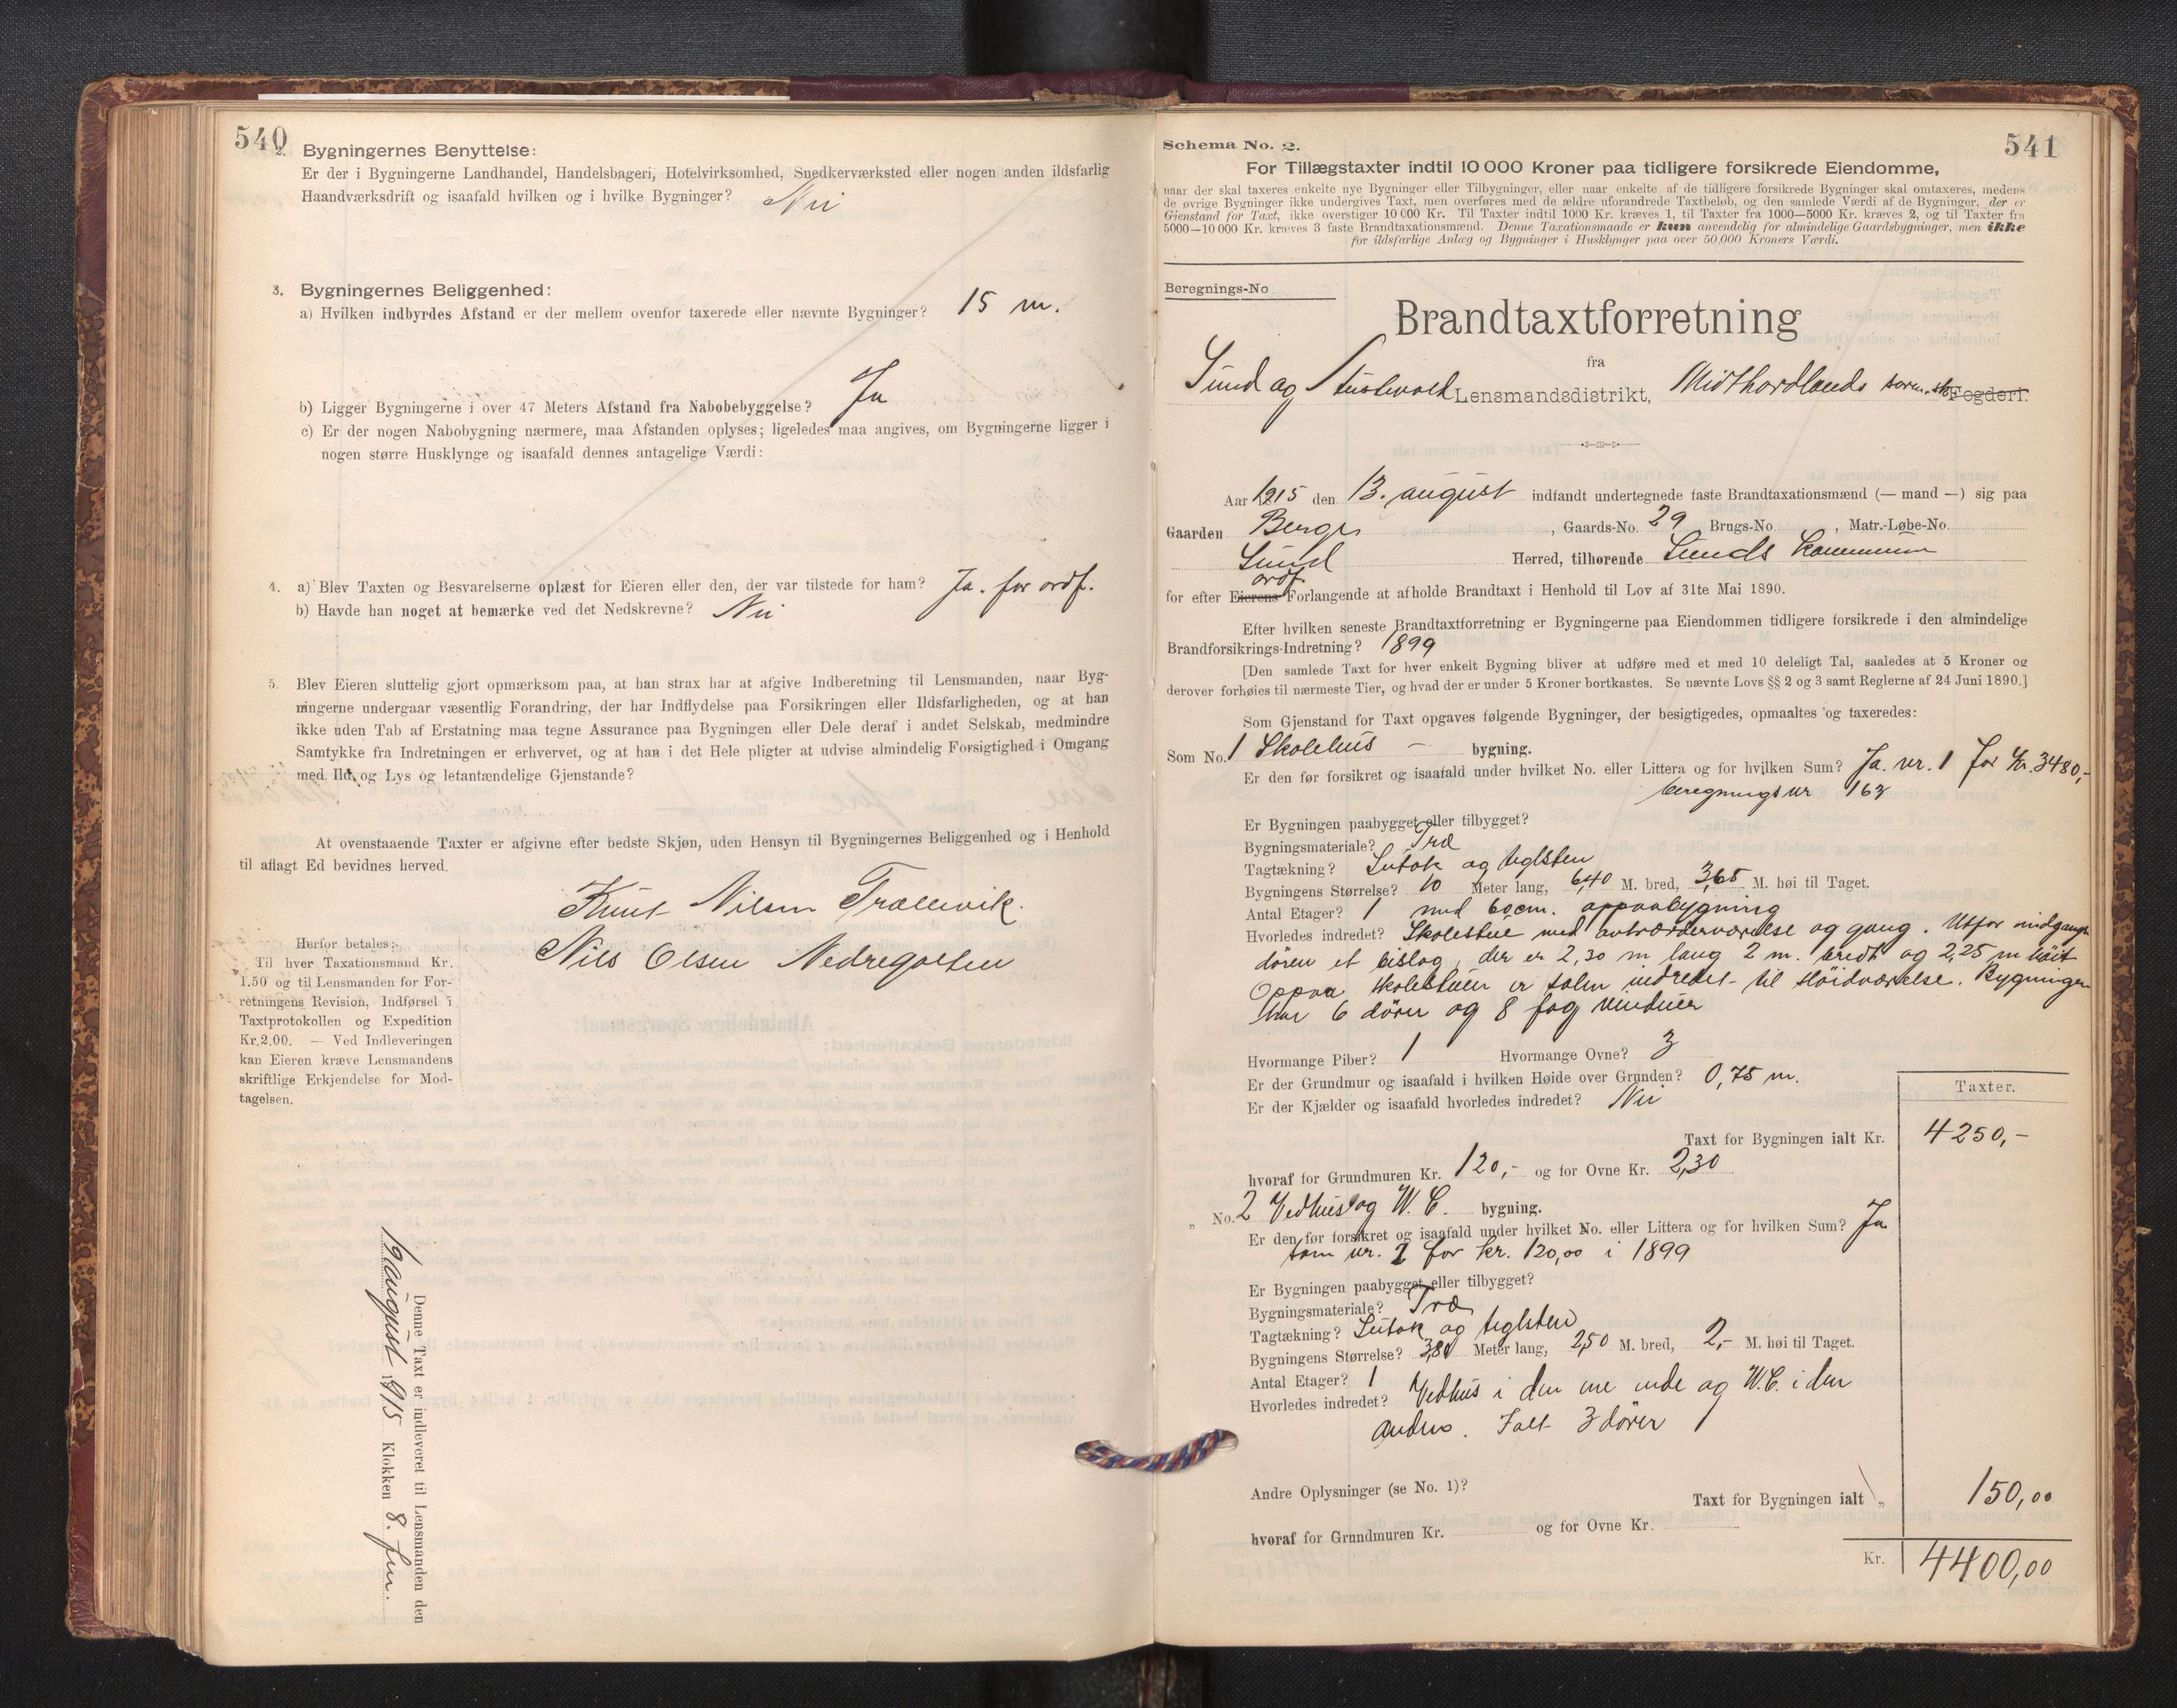 540
2. Bygningernes Benyttelse:
Er der i Bygningerne Landhandel, Handelsbageri, Hotelvirksomhed, Snedkerværksted eller nogen anden ildsfarlig
Haandværksdrift og isaafald hvilken og i hvilke Bygninger? Nei
3. Bygningernes Beliggenhed:
a) Hvilken indbyrdes Afstand er der mellem ovenfor taxerede eller nævnte Bygninger? 15 m.
b) Ligger Bygningerne i over 47 Meters Afstand fra Nabobebyggelse? Ja
c) Er der nogen Nabobygning nærmere, maa Afstanden oplyses; ligeledes maa angives, om Bygningerne ligger i
nogen større Husklynge og isaafald dennes antagelige Værdi:
4. a) Blev Taxten og Besvarelserne oplæst for Eieren eller den, der var tilstede for ham? Ja. for ordf.
b) Havde han noget at bemærke ved det Nedskrevne? Nei
5. Blev Eieren sluttelig gjort opmærksom paa, at han strax har at afgive Indberetning til Lensmanden, naar Byg-
ningerne undergaar væsentlig Forandring, der har Indflydelse paa Forsikringen eller Ildsfarligheden, og at han
ikke uden Tab af Erstatning maa tegne Assurance paa Bygningen eller Dele deraf i andet Selskab, medmindre
Samtykke fra Indretningen er erhvervet, og at han i det Hele pligter at udvise almindelig Forsigtighed i Omgang
med Ild og Lys og letantændelige Gjenstande?
At ovenstaaende Taxter er afgivne efter bedste Skjøn, uden Hensyn til Bygningernes Beliggenhed og i Henhold
til aflagt Ed bevidnes herved.
Knut Nilsen Trællevik.
Nils Olsen Nedregotten
Herfor betales:
Til hver Taxationsmand Kr.
1.50 og til Lensmanden for For-
retningens Revision, Indførsel i
Taxtprotokollen og Expedition
Kr. 2.00. — Ved Indleveringen
kan Eieren kræve Lensmandens
skriftlige Erkjendelse for Mod-
tagelsen.
Denne Taxt er indleveret til Lensmanden den
19 august 1915 Klokken 8. fm.
541
Schema No. 2.
For Tillægstaxter indtil 10 000 Kroner paa tidligere forsikrede Eiendomme,
naar der skal taxeres enkelte nye Bygninger eller Tilbygninger, eller naar enkelte af de tidligere forsikrede Bygninger skal omtaxeres, medens
de øvrige Bygninger ikke undergives Taxt, men overføres med de ældre uforandrede Taxtbeløb, og den samlede Værdi af de Bygninger, der er
Gjenstand for Taxt, ikke overstiger 10 000 Kr. Til Taxter indtil 1000 Kr. kræves 1, til Taxter fra 1000—5000 Kr. kræves 2, og til Taxter fra
5000—10 000 Kr. kræves 3 faste Brandtaxationsmænd. Denne Taxationsmaade er kun anvendelig for almindelige Gaardsbygninger, men ikke
for ildsfarlige Anlæg og Bygninger i Husklynger paa over 50,000 Kroners Værdi.
Beregnings-No
Brandtaxtforretning
fra
Sund og Austevold Lensmandsdistrikt, Midthordlands soren. Fogderi.
Aar 1915 den 13. august indfandt undertegnede faste Brandtaxationsmænd (— mand —) sig paa
Gaarden Berge, Gaards-No. 29 Brugs-No. , Matr.-Løbe-No.
Sund Herred, tilhørende Sunds kommune
ordf.
for efter Eierens Forlangende at afholde Brandtaxt i Henhold til Lov af 31te Mai 1890.
Efter hvilken seneste Brandtaxtforretning er Bygningerne paa Eiendommen tidligere forsikrede i den almindelige
Brandforsikrings-Indretning? 1899
[Den samlede Taxt for hver enkelt Bygning bliver at udføre med et med 10 deleligt Tal, saaledes at 5 Kroner og
derover forhøies til nærmeste Tier, og hvad der er under 5 Kroner bortkastes. Se nævnte Lovs §§ 2 og 3 samt Reglerne af 24 Juni 1890.]
Som Gjenstand for Taxt opgaves følgende Bygninger, der besigtigedes, opmaaltes og taxeredes:
Som No. 1 Skolehus — bygning.
Er den før forsikret og isaafald under hvilket No. eller Littera og for hvilken Sum? Ja. nr. 1 for Kr. 3480,-
beregningsnr 163
Er Bygningen paabygget eller tilbygget?
Bygningsmateriale? Træ
Tagtækning? Sutak og teglsten
Bygningens Størrelse? 10 Meter lang, 6,40 M. bred, 3,65 M. høi til Taget.
Antal Etager? 1 med 60 cm. oppaabygning
Hvorledes indredet? Skolestue med avtrædesværelse og gang. Utfor indgangs
døren et bislag, der er 2,30 m lang 2 m. bredt og 2,25 m høit
Oppaa skolestuen er salen indredet til Høidværelse. Bygningen
har 6 dører og 8 fag vinduer
Hvormange Piber? 1 Hvormange Ovne? 3
Er der Grundmur og isaafald i hvilken Høide over Grunden? 0,75 m.
Er der Kjælder og isaafald hvorledes indredet? Nei
Taxter.
Taxt for Bygningen ialt Kr. 4250,-
hvoraf for Grundmuren Kr. 120,- og for Ovne Kr. 2,30
„ No. 2 Vedhus og W. C. bygning.
Er den før forsikret og isaafald under hvilket No. eller Littera og for hvilken Sum? Ja
som nr. 2 for kr. 120,00 i 1899
Er Bygningen paabygget eller tilbygget?
Bygningsmateriale? Træ
Tagtækning? Sutak og teglsten
Bygningens Størrelse? 3,80 Meter lang, 2,50 M. bred, 2,- M. høi til Taget.
Antal Etager? 1
Hvorledes indredet? Vedhus i den ene ende og W.C. i den
anden. Ialt 3 dører
Andre Oplysninger (se No. 1)?
Taxt for Bygningen ialt „ 150,00
hvoraf for Grundmuren Kr. og for Ovne Kr.
Kr. 4400,00